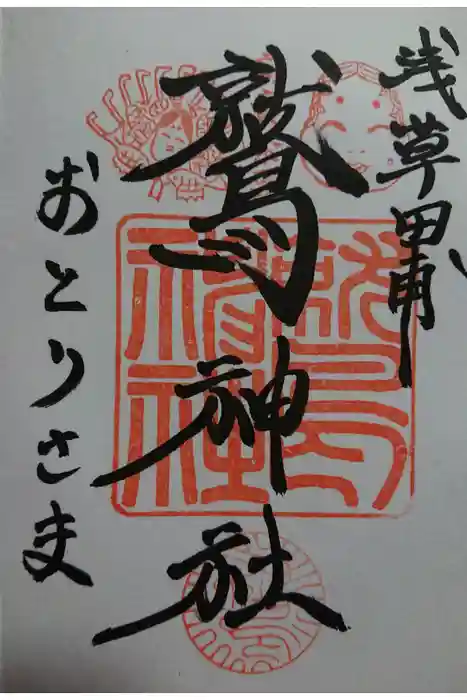 浅草田甫
鷲神社
おとりさま
鷲神社